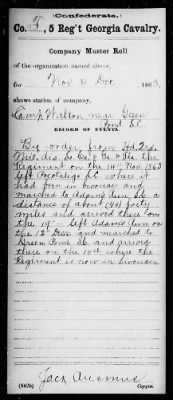 Confederate.
Co. F, 5 Reg't Georgia Cavalry.
Company Muster Roll
of the organization named above,
for Nov & Dec 1863,
shows station of company,
Camp Walton, near Green
Pond S.C.
RECORD OF EVENTS.
By order from Hd. Qrs
Mil. dis. So. Ca. & Ga. & Fla. the
Regiment on the 16th Nov 1863
left Pocotaligo S.C. where it
had been in bivouac and
marched to Adams Run S.C. a
distance of about (40) forty
miles and arrived there on
the 19th left Adams Run on
the 12th Decr and marched to
Green Pond S.C. and arrived
there on the where the
Regiment is now in bivouac
(647b)
Copyist.